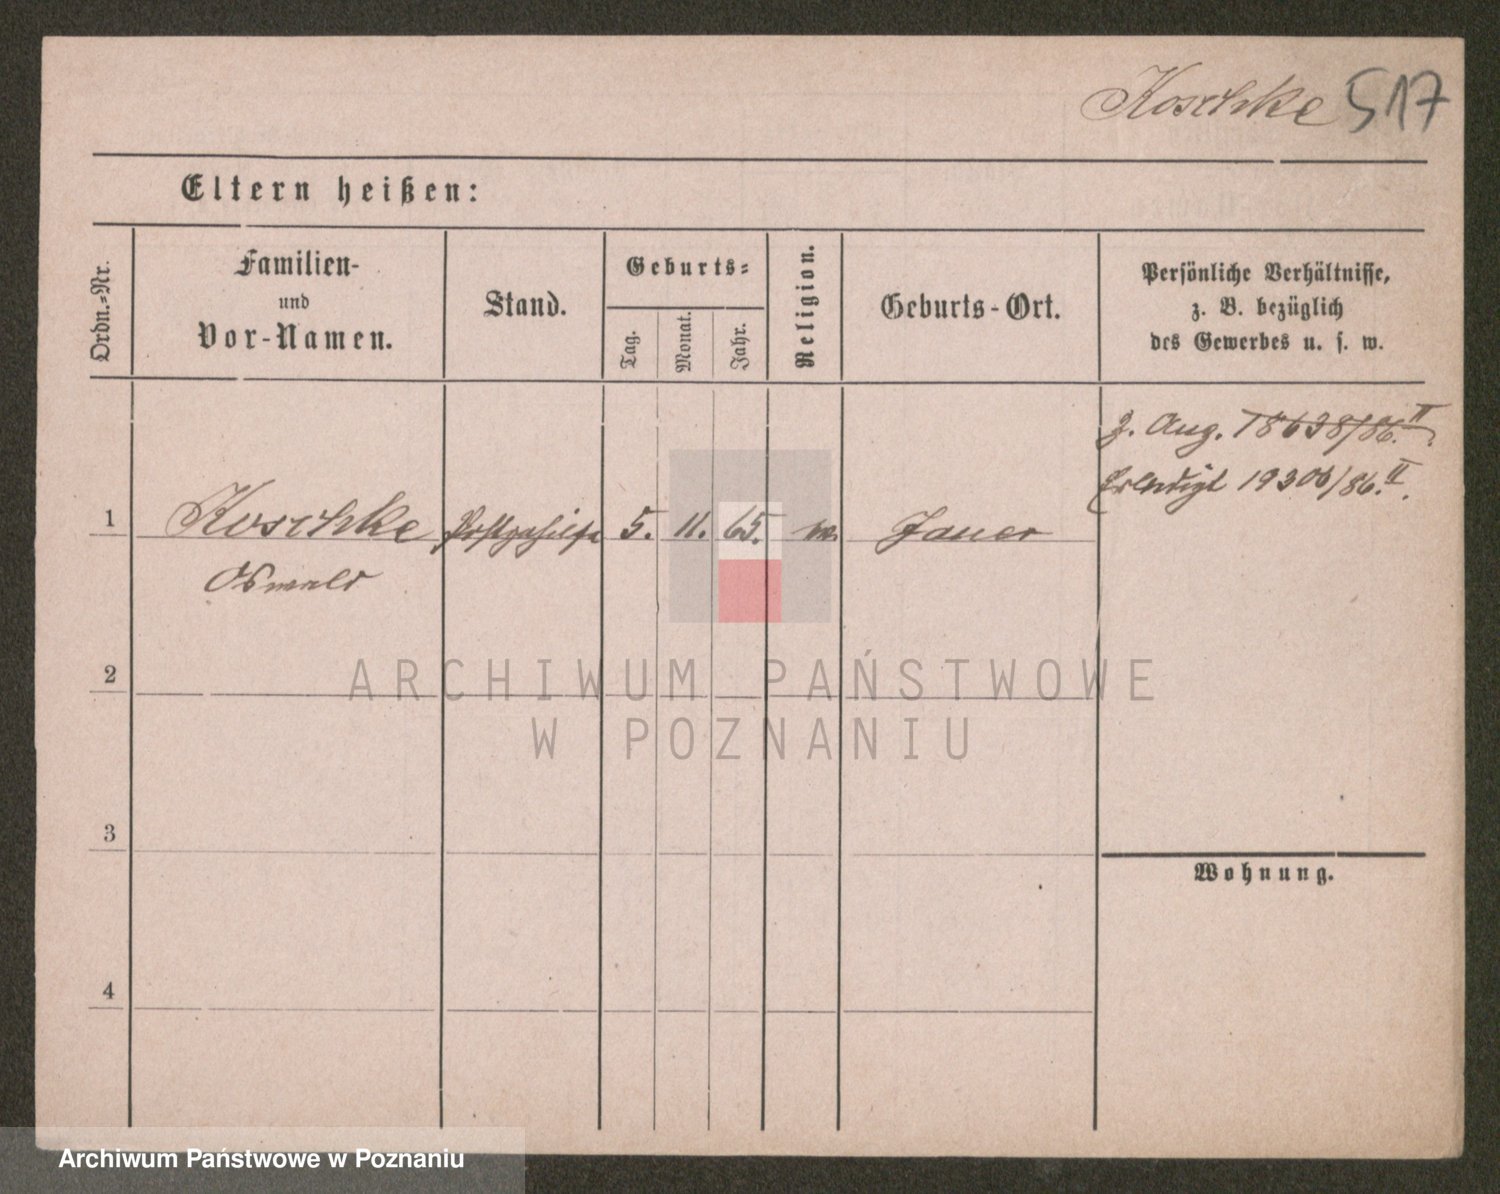 Koschke 517
Eltern heißen:
Ordn.=Nr.
Familien-
und
Vor-Namen.
Stand.
Geburts=
Tag.
Monat.
Jahr.
Religion.
Geburts-Ort.
Persönliche Verhältnisse,
z. B. bezüglich
des Gewerbes u. s. w.
z. Ang. 18638/86.II.
Erledigt 19306/86.II.
1 Koschke Postgehilfe 5. 11. 65. Jauer
Oswald
2
3
4
Wohnung.
ARCHIWUM PAŃSTWOWE
W POZNANIU
Archiwum Państwowe w Poznaniu